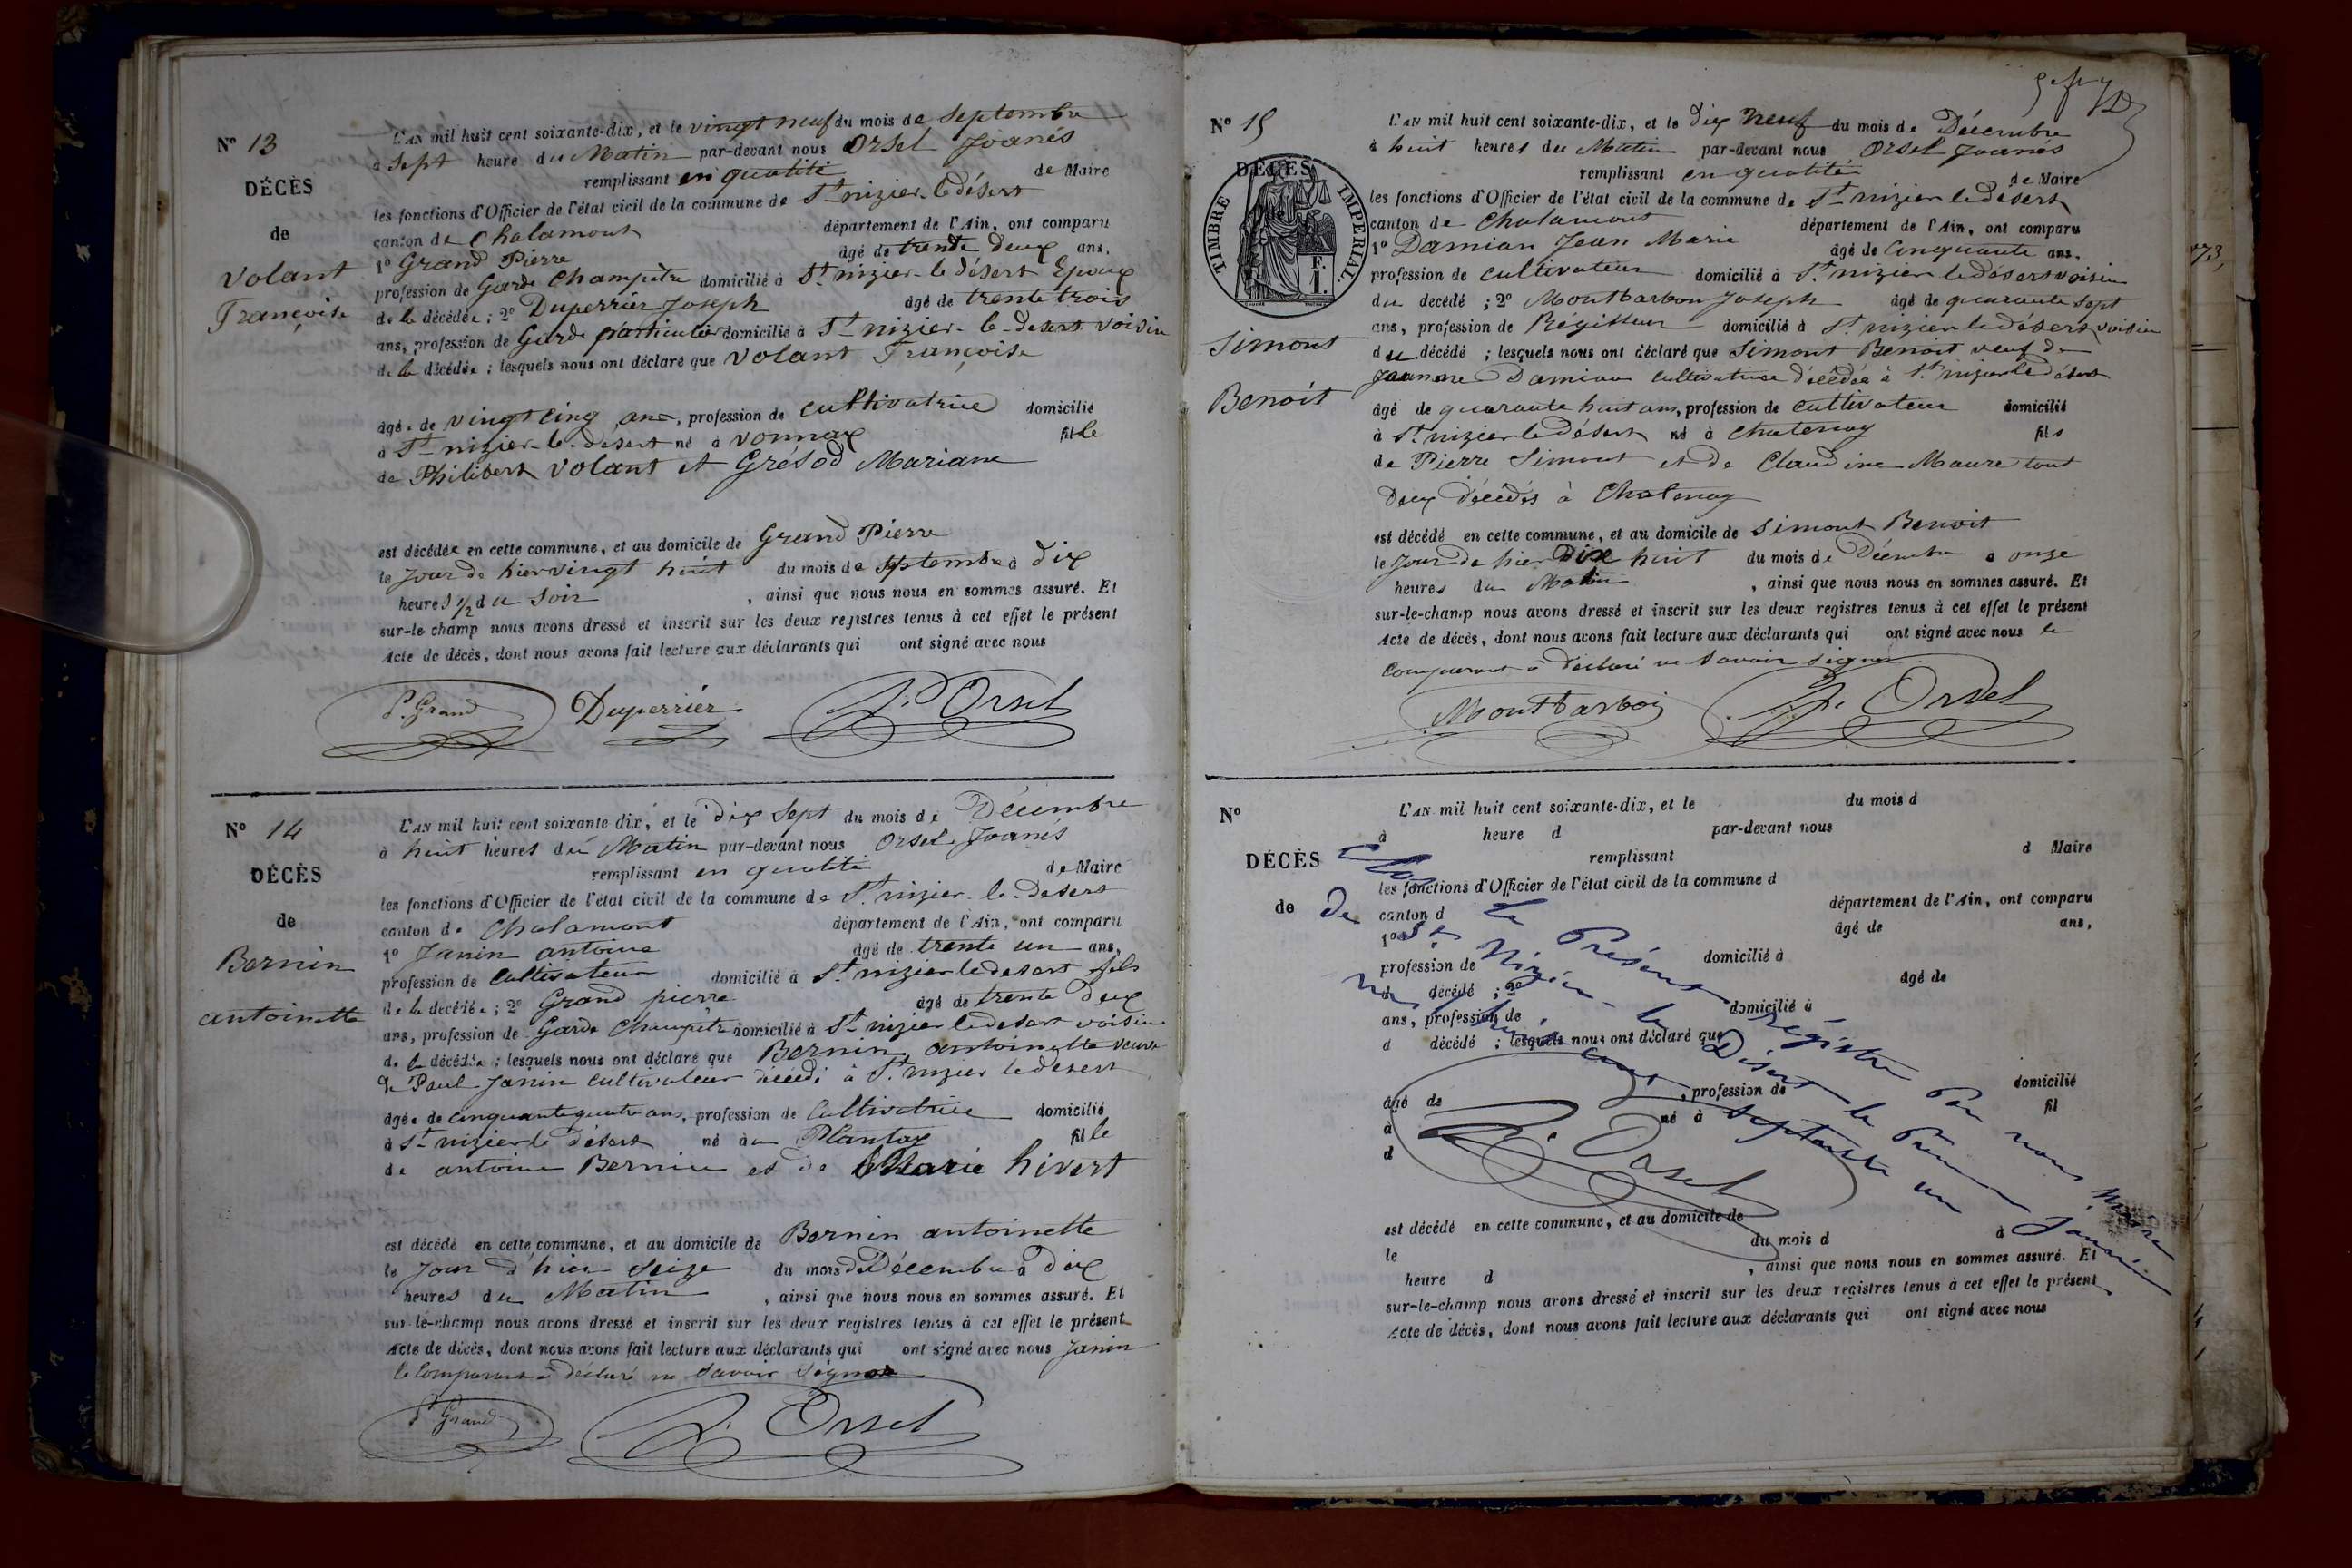 N° 13
DÉCÈS
de
Volant
Françoise
L'AN mil huit cent soixante-dix, et le vingt neuf du mois de Septembre
à Sept heure du Matin par-devant nous Orsel Joanés
remplissant en qualité de Maire
les fonctions d'Officier de l'état civil de la commune de St nizier-le désert
canton de Chalamont département de l'Ain, ont comparu
1° Grand Pierre âgé de trente deux ans,
profession de Garde Champêtre domicilié à St nizier-le désert Epoux
de la décédée ; 2° Duperrier Joseph âgé de trente trois
ans, profession de Garde particulier domicilié à St nizier-le-desert voisin
de la décédée ; lesquels nous ont déclaré que Volant Françoise
âgée de vingt cinq ans, profession de cultivatrice domicilié
à St nizier-le-desert né à Vonnax fille
de Philibert Volant et Grésod Mariane
est décédée en cette commune, et au domicile de Grand Pierre
le Jour de hier vingt huit du mois de Septembre à Dix
heures 1/2 du Soir , ainsi que nous nous en sommes assuré. Et
sur-le-champ nous avons dressé et inscrit sur les deux registres tenus à cet effet le présent
Acte de décès, dont nous avons fait lecture aux déclarants qui ont signé avec nous
P. Grand Duperrier J. Orsel
N° 14
DÉCÈS
de
Bernin
antoinette
L'AN mil huit cent soixante-dix, et le dix Sept du mois de Décembre
à huit heures du Matin par-devant nous Orsel Joanés
remplissant en qualité de Maire
les fonctions d'Officier de l'état civil de la commune de St nizier-le-desert
canton de Chalamont département de l'Ain, ont comparu
1° Janin antoine âgé de trente un ans,
profession de Cultivateur domicilié à St nizier le desert fils
de la décédée ; 2° Grand pierre âgé de trente Deux
ans, profession de Garde Champêtre domicilié à St nizier le desert voisin
de la décédée ; lesquels nous ont déclaré que Bernin antoinette veuve
de Paul Janin cultivateur décédé à St nizier le desert
âgée de cinquante quatre ans, profession de Cultivatrice domicilié
à St nizier le désert né au Plantay fille
de antoine Bernin et de Marie hivert
est décédé en cette commune, et au domicile de Bernin antoinette
le Jour d'hier Seize du mois de Décembre à Dix
heures du Matin , ainsi que nous nous en sommes assuré. Et
sur-le-champ nous avons dressé et inscrit sur les deux registres tenus à cet effet le présent
Acte de décès, dont nous avons fait lecture aux déclarants qui ont signé avec nous Janin
le Comparant a déclaré ne savoir Signer
P. Grand J. Orsel
N° 15
DÉCÈS
de
TIMBRE IMPERIAL.
F.
1.
Simont
Benoit
L'AN mil huit cent soixante-dix, et le Dix neuf du mois de Décembre
à huit heures du Matin par-devant nous Orsel Joanés
remplissant en qualité de Maire
les fonctions d'Officier de l'état civil de la commune de St nizier le desert
canton de Chalamont département de l'Ain, ont comparu
1° Damian Jean Marie âgé de Cinquante ans,
profession de cultivateur domicilié à St nizier le desert voisin
du decédé ; 2° Montbarbon Joseph âgé de quarante Sept
ans, profession de Régisseur domicilié à St nizier le désert voisin
du décédé ; lesquels nous ont déclaré que Simont Benoit veuf de
Jeanne Damian Cultivatrice décédée à St nizier le désert
âgé de quarante huit ans, profession de Cultivateur domicilié
à St nizier le Désert né à Chatenay fils
de Pierre Simont et de Claudine Maure tout
Deux décédés à Chatenay
est décédé en cette commune, et au domicile de Simont Benoit
le Jour de hier Dix huit du mois de Décembre à onze
heures du Matin , ainsi que nous nous en sommes assuré. Et
sur-le-champ nous avons dressé et inscrit sur les deux registres tenus à cet effet le présent
Acte de décès, dont nous avons fait lecture aux déclarants qui ont signé avec nous le
Comparant a déclaré ne Savoir Signer
Montbarbon J. Orsel
N°
DÉCÈS
de
L'AN mil huit cent soixante-dix, et le du mois d
à heure d par-devant nous
remplissant d Maire
les fonctions d'Officier de l'état civil de la commune d
canton d département de l'Ain, ont comparu
1° âgé de ans,
profession de domicilié à
d décédé ; 2° âgé de
ans, profession de domicilié à
d décédé ; lesquels nous ont déclaré que
âgé de , profession de domicilié
à né à fil
d
est décédé en cette commune, et au domicile de
le du mois d à
heure d , ainsi que nous nous en sommes assuré. Et
sur-le-champ nous avons dressé et inscrit sur les deux registres tenus à cet effet le présent
Acte de décès, dont nous avons fait lecture aux déclarants qui ont signé avec nous
Clos le Présent régistre Par nous Maire
de St Nizier-le Désert le Premier Janvier
mil huit cent septante un
J. Orsel